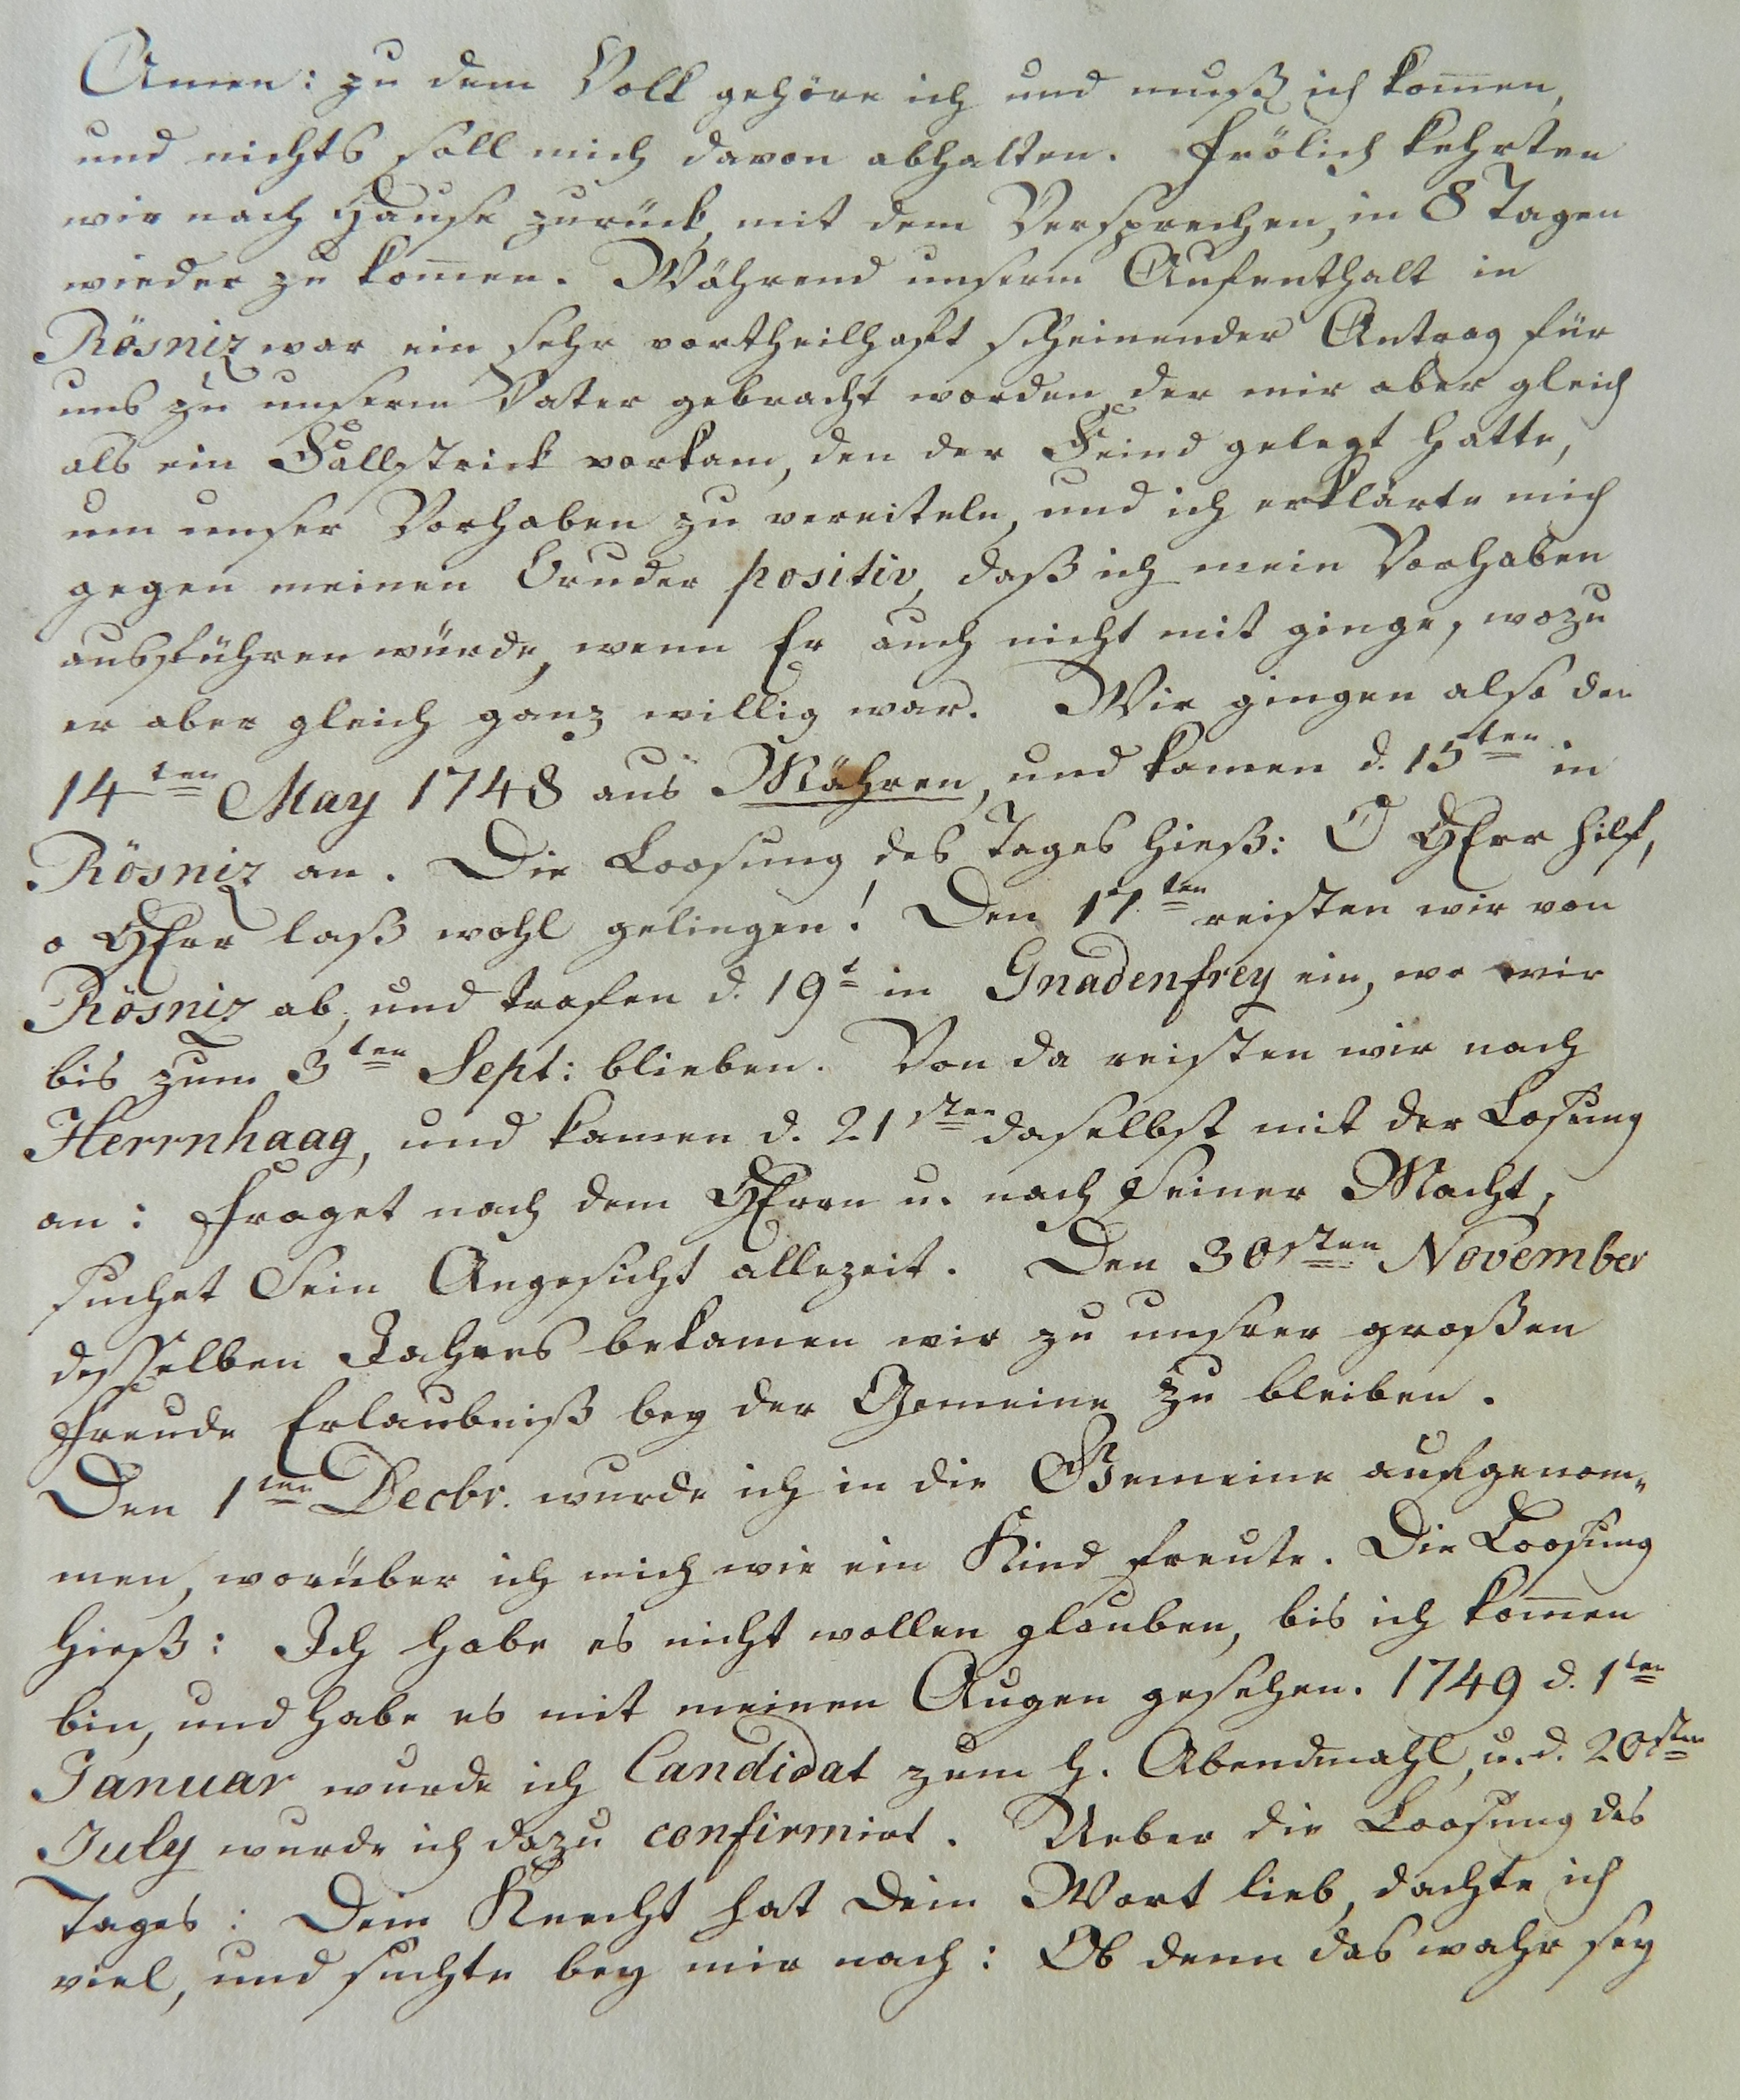 Amen: zu dem Volk gehöre ich und muß ich kom̅en,
und nichts soll mich davon abhalten. Frölich kehrten
wir nach Hause zurück, mit dem Versprechen, in 8 Tagen
wieder zu kom̅en. Während unserm Aufenthalt in
Rösniz war ein sehr vortheilhaft scheinender Antrag für
uns zu unserm Vater gebracht worden, der mir aber gleich
als ein Fallstrick vorkam, den der Feind gelegt hatte,
um unser Vorhaben zu vereiteln, und ich erklärte mich
gegen meinen Bruder positiv, daß ich mein Vorhaben
ausführen würde, wenn Er auch nicht mit ginge, wozu
er aber gleich ganz willig war. Wir gingen also den
14ten May 1748 aus Mähren, und kamen d. 15ten in
Rösniz an. Die Loosung des Tages hieß: O HErr hilf,
o HErr laß wohl gelingen! Den 17.ten reisten wir von
Rösniz ab, und trafen d. 19t in Gnadenfrey ein, wo wir
bis zum 3ten Sept: blieben. Von da reisten wir nach
Herrnhaag, und kamen d. 21sten daselbst mit der Losung
an: Fraget nach dem HErrn u. nach Seiner Macht,
suchet Sein Angesicht allezeit. Den 30sten November
desselben Jahres bekamen wir zu unsrer großen
Freude Erlaubniß bey der Gemeine zu bleiben.
Den 1ten Decbr. wurde ich in die Gemeine aufgenom-
men, worüber ich mich wie ein Kind freute. Die Loosung
hieß: Ich habe es nicht wollen glauben, bis ich kom̅en
bin, und habe es mit meinen Augen gesehen. 1749 d. 1ten
Januar wurde ich Candidat zum h. Abendmahl, u. d. 20sten
July wurde ich dazu confirmirt. Ueber die Loosung des
Tages: Dein Knecht hat Dein Wort lieb, dachte ich
viel, und suchte bey mir nach: Ob denn das wahr sey